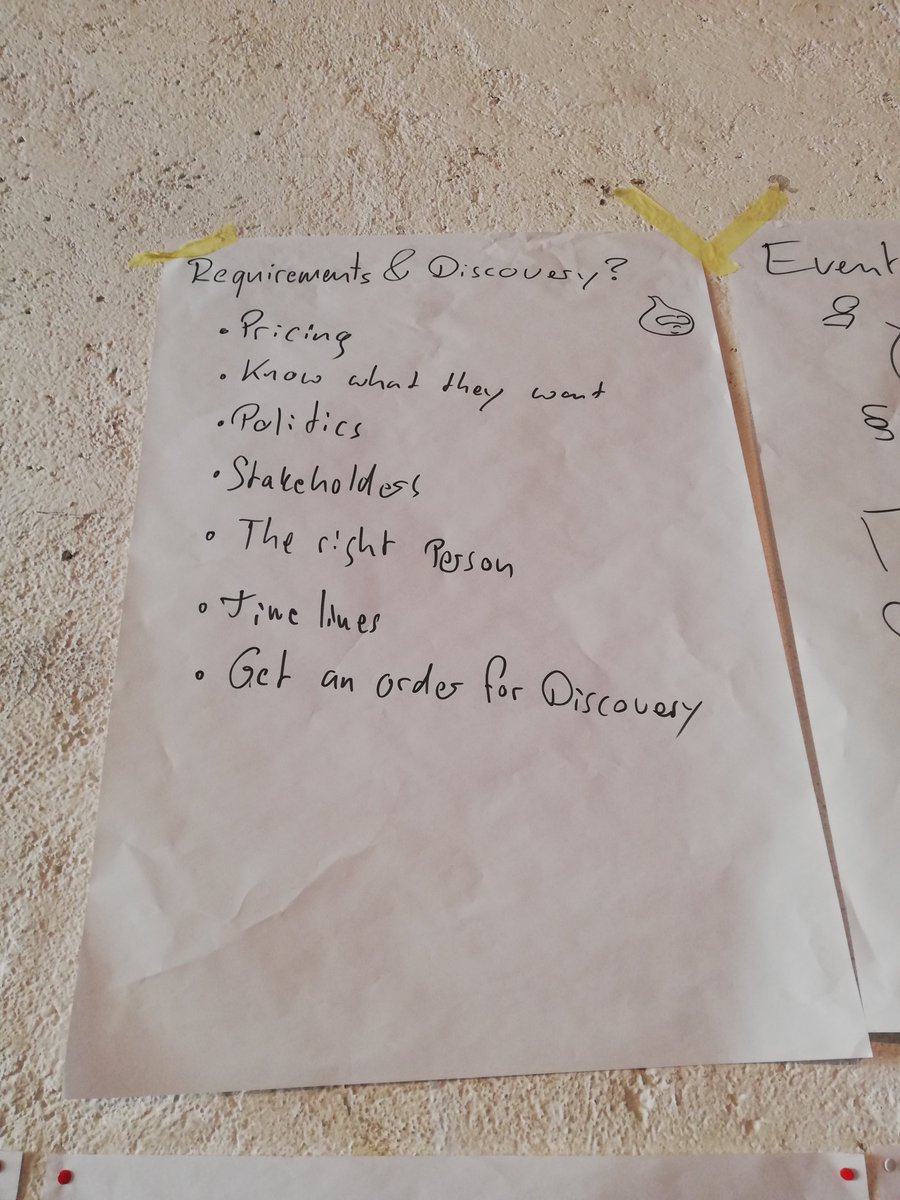 Requirements & Discovery?
• Pricing
• Know what they want
• Politics
• Stakeholders
• The right Person
• Time lines
• Get an order for Discovery
Event